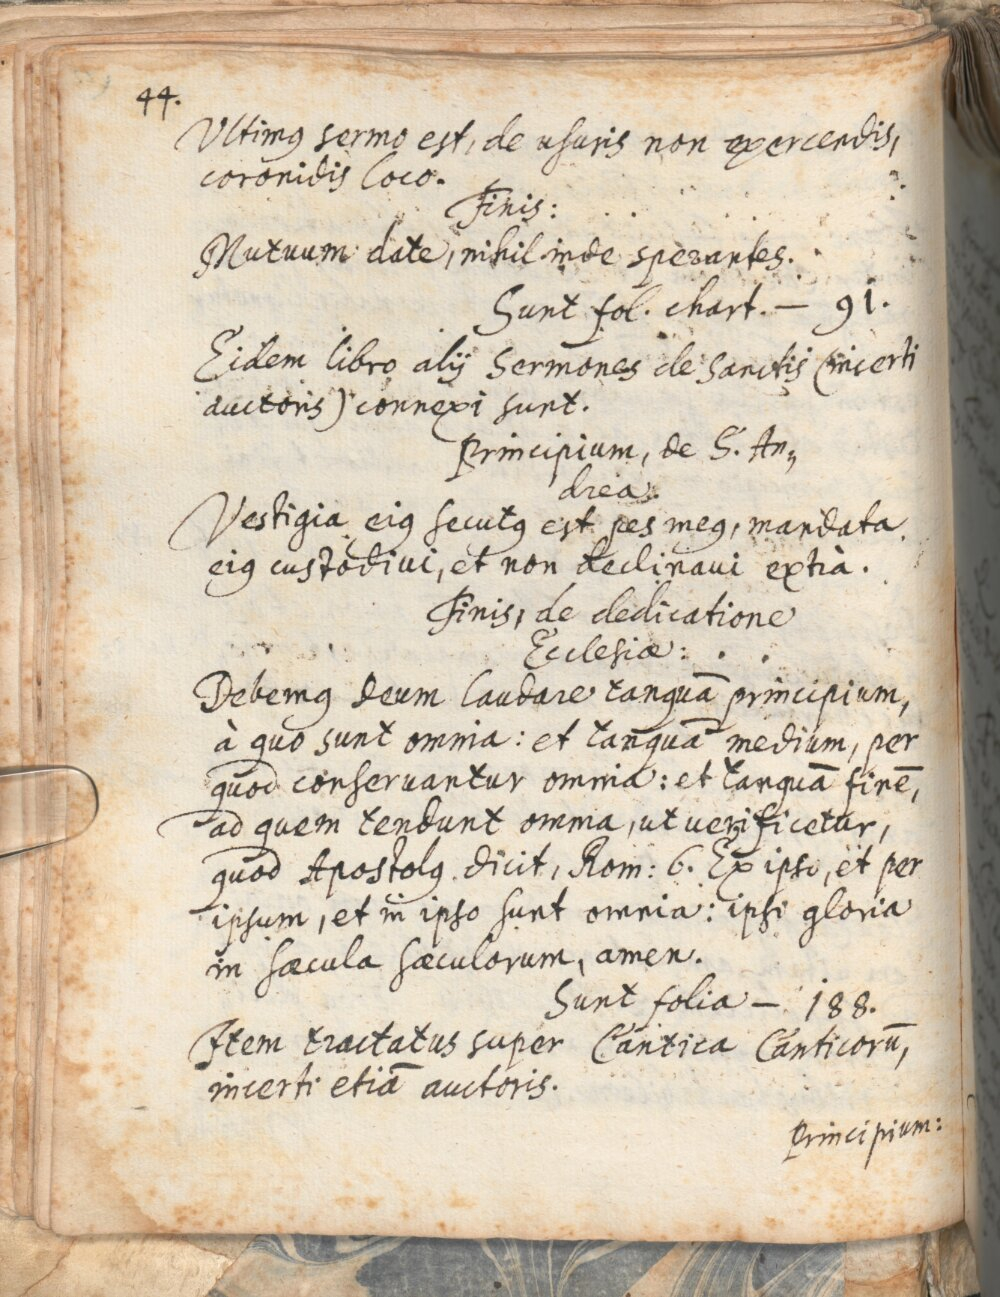 44.
Ultimꝰ sermo est, de usuris non exercendis,
coronidis loco.
Finis:
Mutuum date, nihil inde sperantes.
Sunt fol. chart. — 91.
Eidem libro alij Sermones de Sanctis (incerti
auctoris) connexi sunt.
Principium, de S. An„
drea.
Vestigia eiꝰ secutꝰ est pes meꝰ, mandata
eiꝰ custodiui, et non declinaui extrà.
Finis, de dedicatione
Ecclesiæ:
Debemꝰ Deum laudare tanquā principium,
à quo sunt omnia: et tanquā medium, per
quod conseruantur omnia: et tanquā finē,
ad quem tendunt omnia, ut uerificetur,
quod Apostolꝰ dicit, Rom: 6. Ex ipso, et per
ipsum, et in ipso sunt omnia: ipsi gloria
in sæcula sæculorum, amen.
Sunt folia — 188.
Item tractatus super Cantica Canticorū,
incerti etiā auctoris.
Principium: